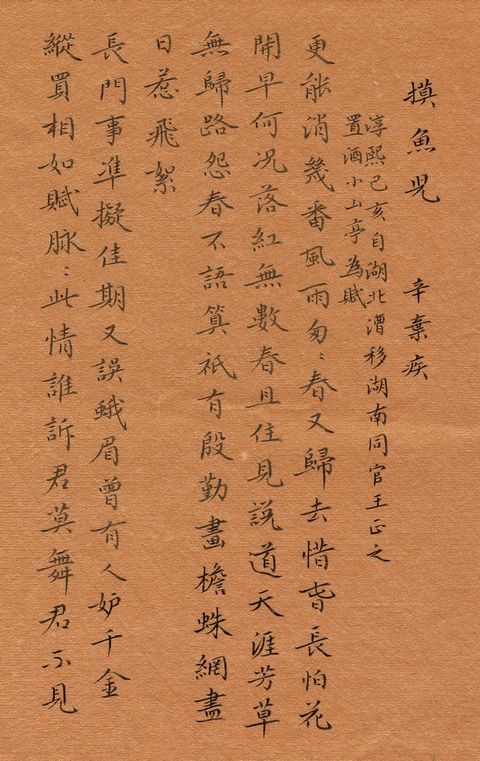 摸魚兒 辛棄疾
淳熙己亥自湖北漕移湖南同官王正之
置酒小山亭為賦
更能消幾番風雨匆〻春又歸去惜旾長怕花
開早何況落紅無數春且住見説道天涯芳草
無歸路怨春不語算祇有殷勤畫檐蛛網盡
日惹飛絮
長門事準擬佳期又誤蛾眉曾有人妒千金
縱買相如賦脉〻此情誰訴君莫舞君不見